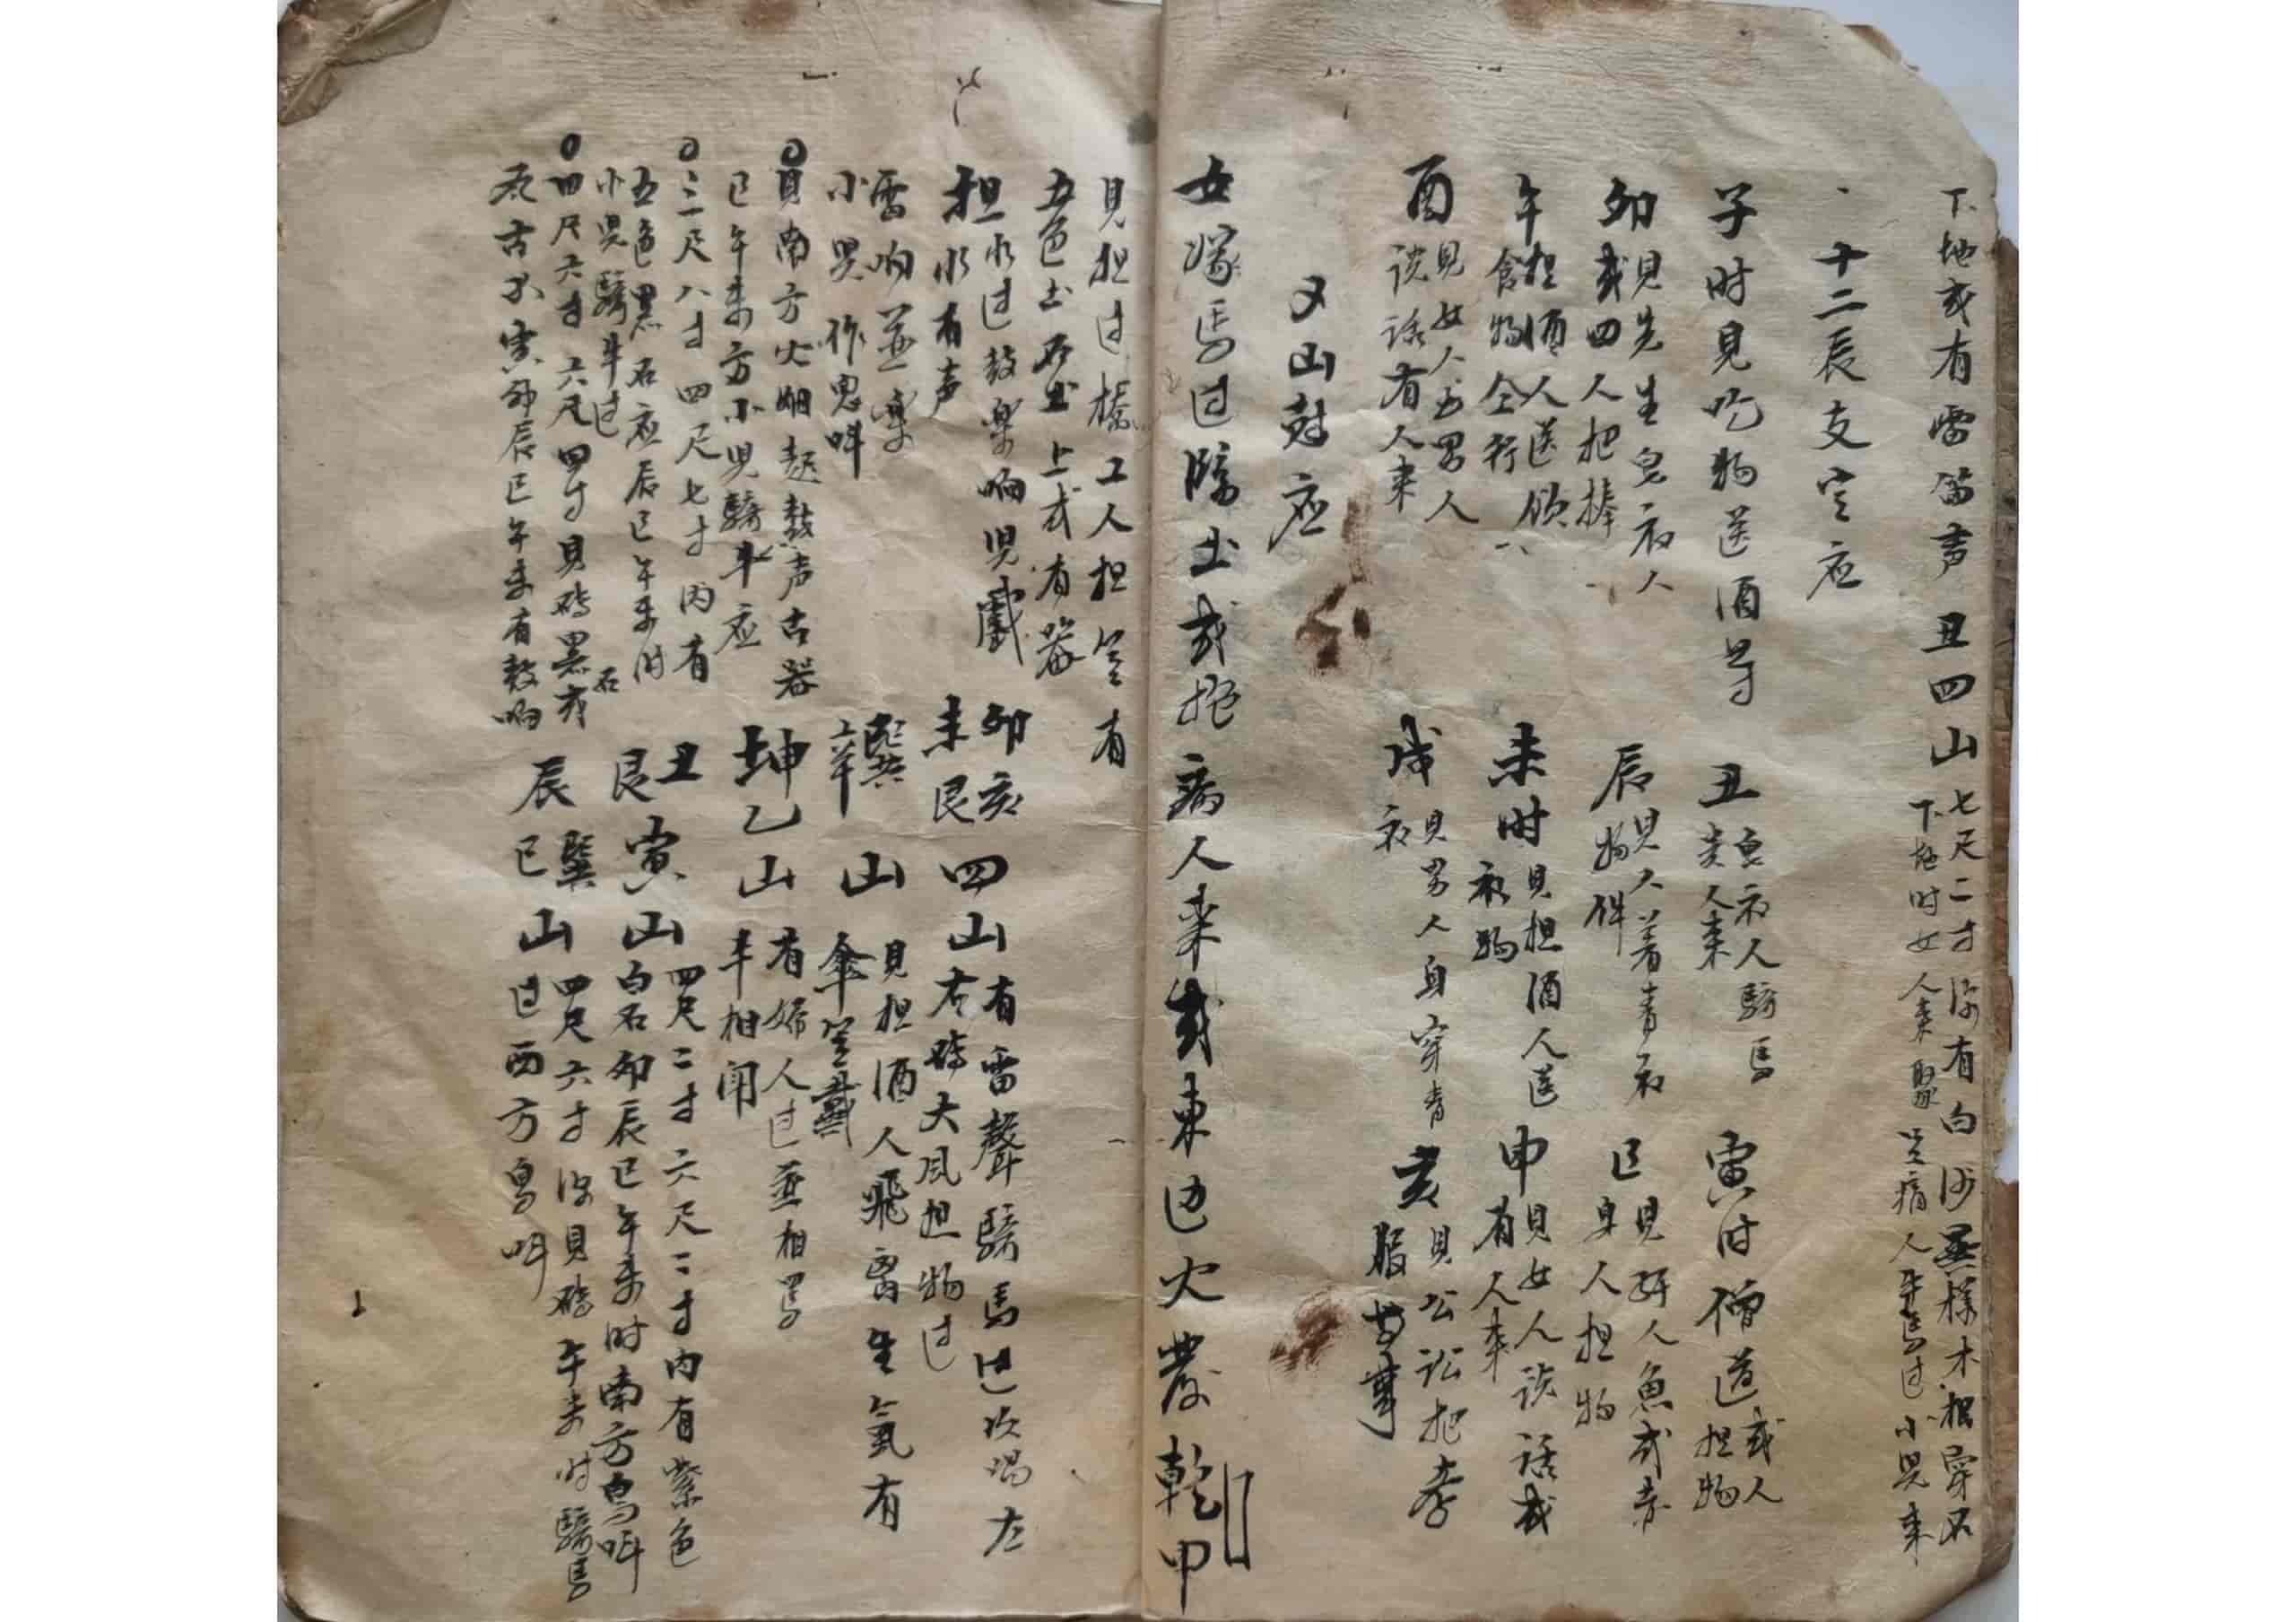 下地或有雷笛声丑四山七尺二寸深有白沙無樣木根穿石
下地时女人来聚 病人牛馬过小児来
十二辰支定应
子时見吃物送酒导
丑皂衣人騎馬
美人来
寅时僧道或人
担物
卯見先生皂衣人
或四人把捧
辰見人着青衣
物件
巳見好人魚或赤
身人担物
午担酒人送
食物仝行
未时見担酒人送
衣物
申見女人谈话或
有人来
酉見女人五男人
谈话有人来
戌見男人身穿青
衣
亥見公讼把孝
服
又山封应
女嫁馬过臨土或抱病人来或東边火發乾甲
見担过橋工人担笠有
五色土石出上或有器
担水过鼓楽响児戲
担水有声
卯亥
未艮
四山有雷聲騎馬过次喝左
右磚大風担物过
雷响並楽
小児作鬼呌
巽
辛
山見担酒人飛禽生氣有
傘笠戴
貝南方火烟起鼓声古器
巳午来方小児騎牛应
坤乙山有婦人过並相罵
半相闹
三尺八寸四尺七寸内有
五色黑石应辰巳午来时
小児騎牛过
丑
艮
寅山四尺二寸六尺三寸内有紫色
白石卯辰巳午来时南方鳥呌
四尺六寸六尺四寸見磚黑或石
瓦古不寅卯辰巳午来有鼓响
巽
辰巳山四尺六寸深見磚午来时騎馬
过西方鳥呌